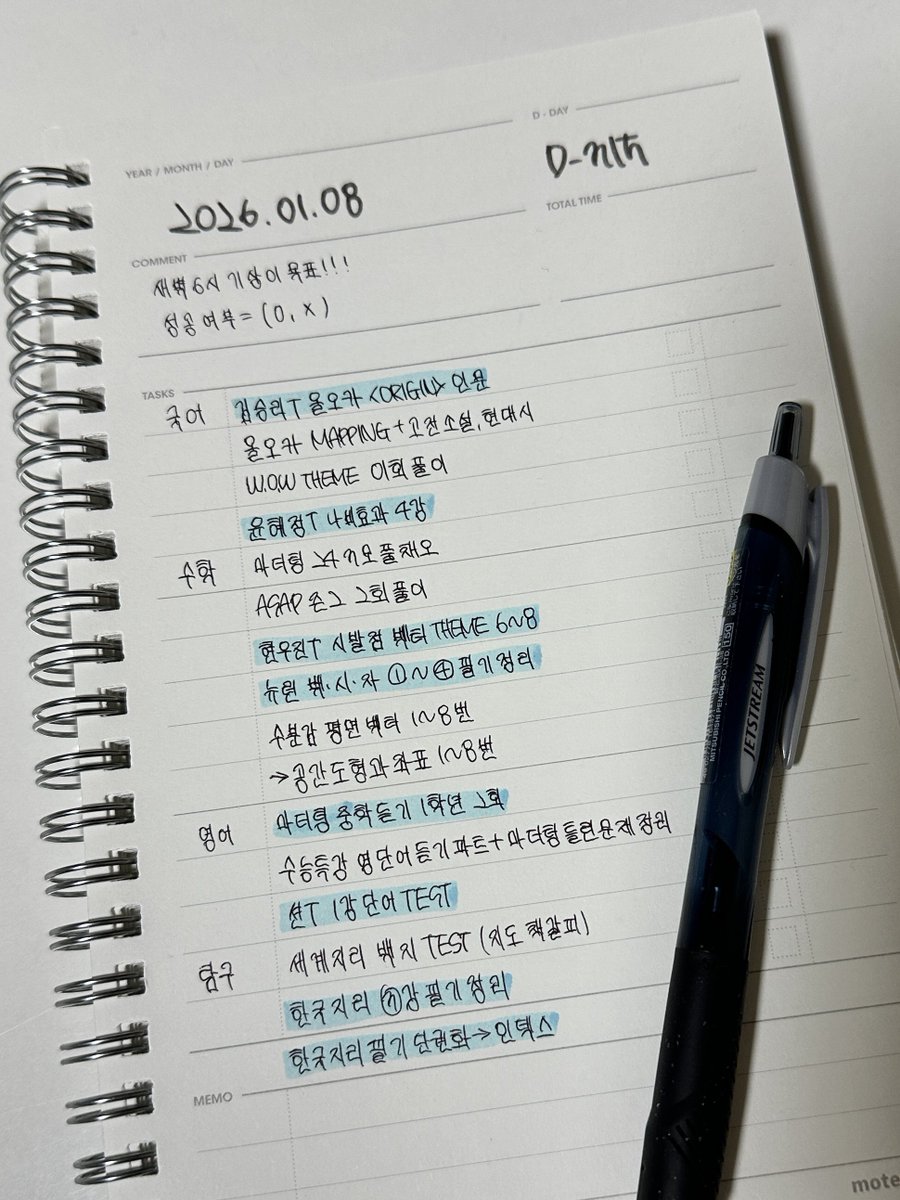 YEAR / MONTH / DAY
2026.01.08
D - DAY
TOTAL TIME
COMMENT
새벽 6시 기상이 목표!!!
성공여부 = (O, X)
TASKS
국어
김승리T 올오카 <ORIGIN> 인문
올오카 MAPPING + 고전소설, 현대시
W.O.W THEME 이회풀이
윤혜정T 나비효과 4강
수학
마더텅 24 기모풀채오
ASAP 손그 2회풀이
현우진T 시발점 벡터 THEME 6~8
뉴런 벡·시·자 ①~④ 필기정리
수분감 평면벡터 1~8번
→ 공간도형과 좌표 1~8번
영어
마더텅 중학듣기 1학년 2회
수능특강 영단어 듣기 파트 + 마더텅 틀린문제 정리
션T 1강 단어 TEST
탐구
세계지리 백지 TEST (지도 책갈피)
한국지리 강 필기정리
한국지리 필기 단권화 → 인덱스
MEMO
JETSTREAM
MITSUBISHI PENCIL CO., LTD.
mote